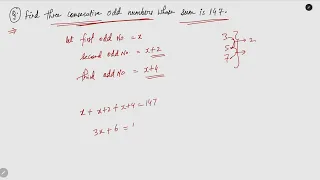 Q: Find three consecutive odd numbers whose sum is 147.
⇒ let first odd No = x
second odd No = x+2
third odd No = x+4
3
5
7
2
x + x+2 + x+4 = 147
3x + 6 = 1